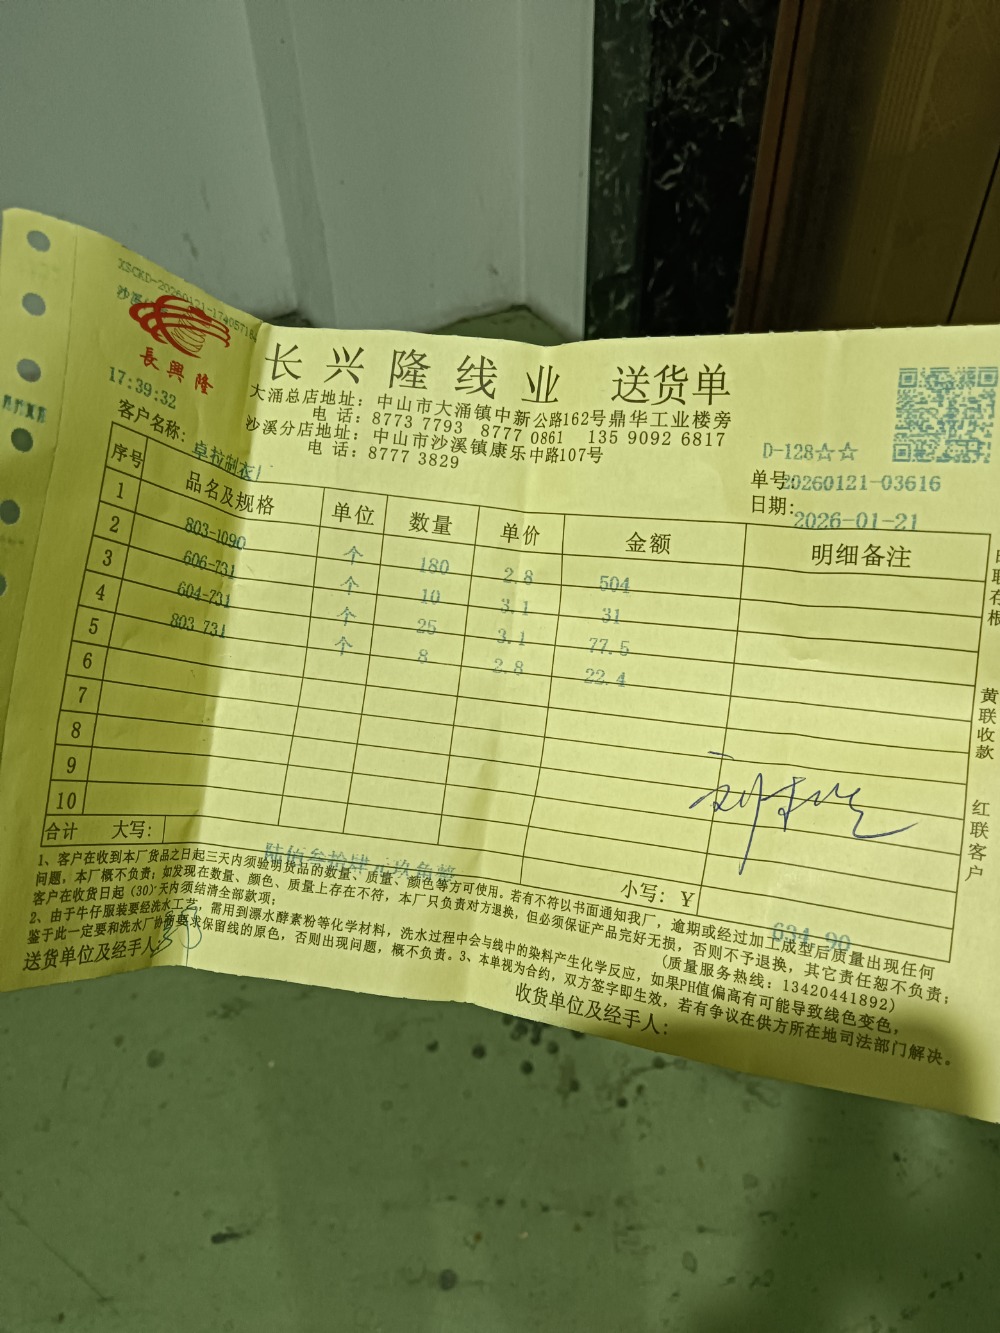 XSCKD-20260121-1740571
長興隆
长兴隆线业 送货单
17:39:32
大涌总店地址：中山市大涌镇中新公路162号鼎华工业楼旁
电 话：8773 7793 8777 0861 135 9092 6817
沙溪分店地址：中山市沙溪镇康乐中路107号
电 话：8777 3829
D-128☆☆
客户名称：卓拉制衣厂
单号：20260121-03616
日期：2026-01-21
序号 品名及规格 单位 数量 单价 金额 明细备注
1 803-1090 个 180 2.8 504
2 606-731 个 10 3.1 31
3 604-731 个 25 3.1 77.5
4 803-731 个 8 2.8 22.4
5
6
7
8
9
10
合计 大写：陆佰叁拾肆元玖角整 小写：￥ 634.90
1、客户在收到本厂货品之日起三天内须验明货品的数量、质量、颜色等方可使用。若有不符以书面通知我厂，逾期或经过加工成型后质量出现任何
问题，本厂概不负责；如发现在数量、颜色、质量上存在不符，本厂只负责对方退换，但必须保证产品完好无损，否则不予退换，其它责任恕不负责；
客户在收货日起（30）天内须结清全部款项； （质量服务热线：13420441892）
2、由于牛仔服装要经洗水工艺，需用到漂水酵素粉等化学材料，洗水过程中会与线中的染料产生化学反应，如果PH值偏高有可能导致线色变色，
鉴于此一定要和洗水厂协商要求保留线的原色，否则出现问题，概不负责。3、本单视为合约，双方签字即生效，若有争议在供方所在地司法部门解决。
送货单位及经手人：
收货单位及经手人：
黄联收款
红联客户